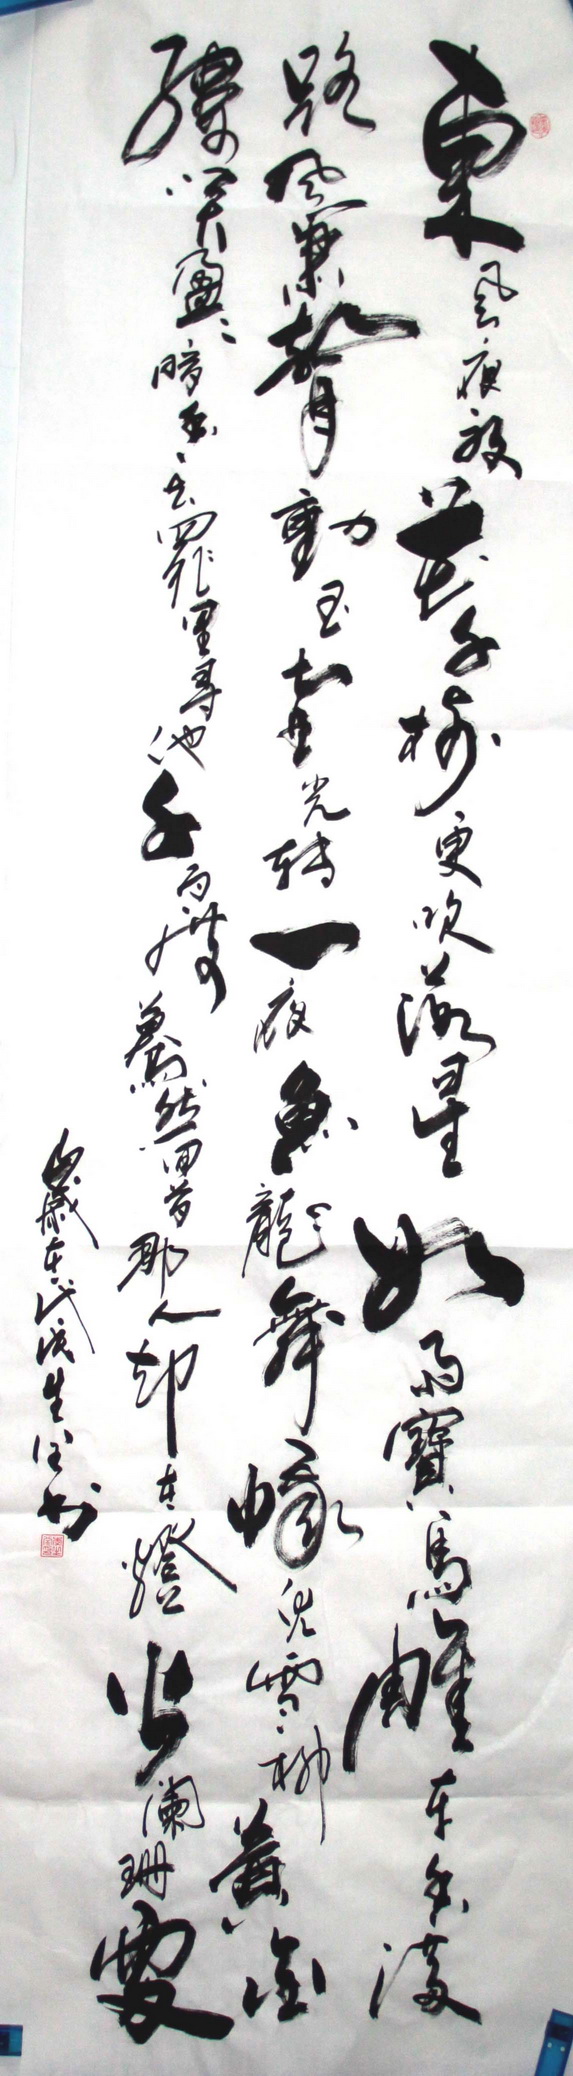 東風夜放花千樹更吹落星如雨寶馬雕車香滿
路鳳簫聲動玉壺光轉一夜魚龍舞蛾兒雪柳黃金
縷笑盈盈暗香去眾里尋他千百度驀然回首那人却在燈火闌珊處
歲在書